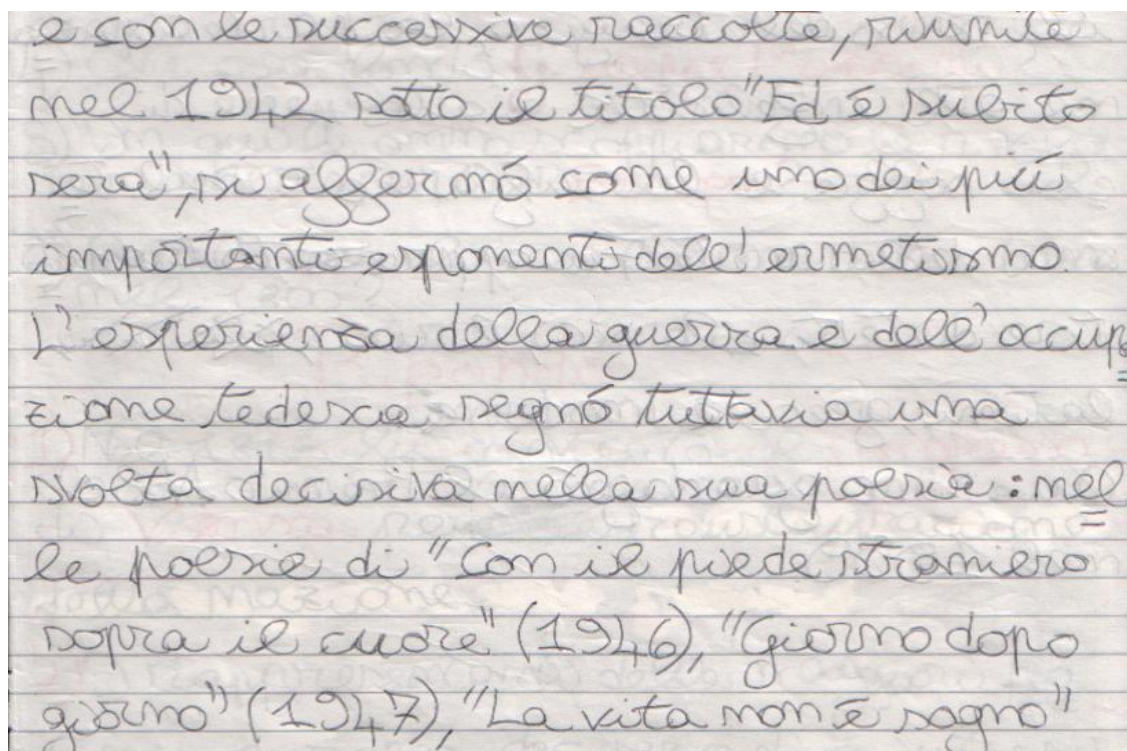 e con le successive raccolte, riunite
nel 1942 sotto il titolo "Ed é subito
sera", si affermó come uno dei piú
importanti esponenti dell'ermetismo.
L'esperienza della guerra e dell'occupa=
zione tedesca segnó tuttavia una
svolta decisiva nella sua poesia: nel=
le poesie di "Con il piede straniero
sopra il cuore" (1946), "Giorno dopo
giorno" (1947), "La vita non é sogno"